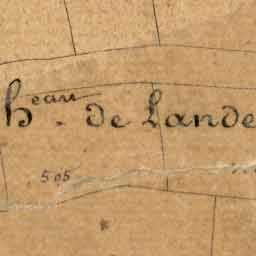 h.eau de Lande
505